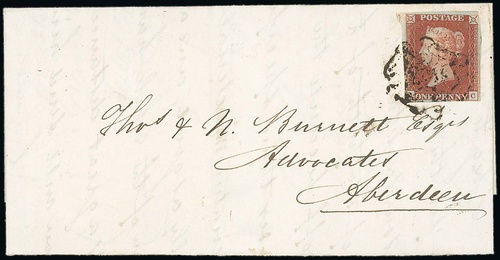 POSTAGE
ONE PENNY
C
Thos & N. Burnett Esqrs
Advocates
Aberdeen